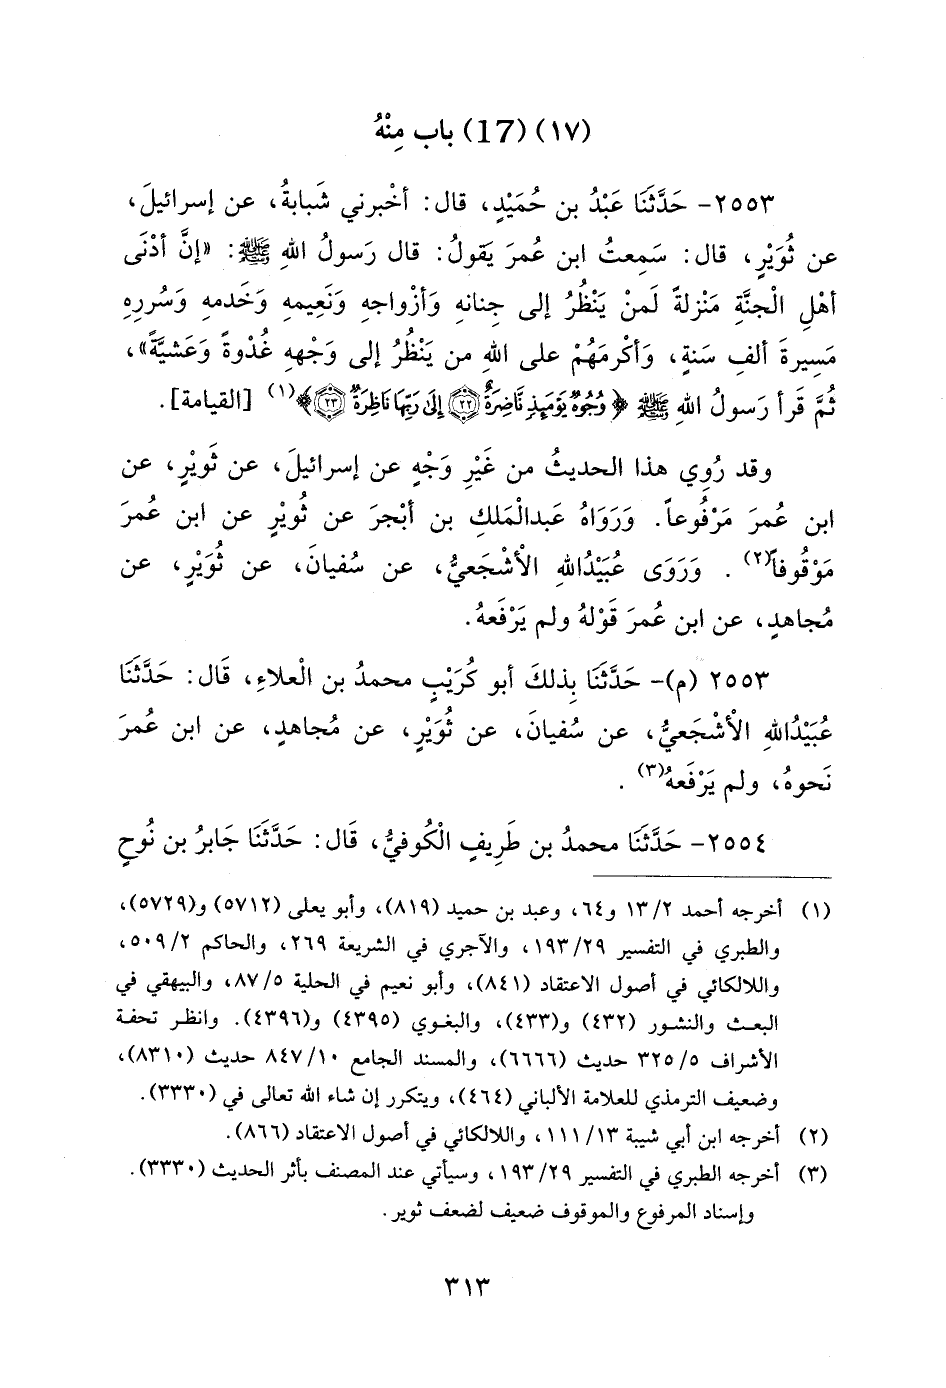 (١٧) (17) باب مِنْهُ
٢٥٥٣- حَدَّثَنَا عَبْدُ بن حُمَيْدٍ، قال: أخْبرني شَبابةُ، عن إسرائيلَ،
عن ثُوَيْرٍ، قال: سَمِعتُ ابن عُمرَ يَقولُ: قال رَسولُ اللهِ ﷺ: «إنَّ أدْنَى
أهْلِ الْجنَّةِ مَنْزلةً لَمنْ يَنْظُرُ إلى جِنانهِ وَأزْواجهِ وَنَعِيمهِ وَخَدمهِ وَسُررِهِ
مَسِيرةَ ألفِ سَنةٍ، وَأكْرمَهُمْ على اللهِ من يَنْظُرُ إلى وَجْههِ غُدْوةً وَعَشيَّةً»،
ثُمَّ قَرأ رَسولُ اللهِ ﷺ ﴿ وُجُوهٌ يَوْمَئِذٍ نَّاضِرَةٌ ﴿٢٢﴾ إِلَىٰ رَبِّهَا نَاظِرَةٌ ﴿٢٣﴾﴾(١) [القيامة].
وقد رُوِي هذا الحديثُ من غَيْرِ وَجْهٍ عن إسرائيلَ، عن ثَويْرٍ، عن
ابن عُمرَ مَرْفُوعاً. وَرَوَاهُ عَبدالْمَلكِ بن أبْجرَ عن ثُويْرٍ عن ابن عمرَ
مَوْقُوفاً(٢). وَرَوَى عُبَيْدُاللهِ الأشْجَعيُّ، عن سُفيانَ، عن ثُوَيْرٍ، عن
مُجاهدٍ، عن ابن عُمرَ قَوْلهُ ولم يَرْفَعهُ.
٢٥٥٣ (م)- حَدَّثَنَا بِذلكَ أبو كُرَيْبٍ محمدُ بن الْعلاءِ، قَال: حَدَّثنَا
عُبَيْدُاللهِ الأشْجَعيُّ، عن سُفيانَ، عن ثُوَيْرٍ، عن مُجاهدٍ، عن ابن عُمرَ
نَحوهُ، ولم يَرْفَعهُ(٣).
٢٥٥٤- حَدَّثَنَا محمدُ بن طَرِيفٍ الْكُوفيُّ، قَال: حَدَّثنَا جَابرُ بن نُوحٍ
(١) أخرجه أحمد ١٣/٢ و٦٤، وعبد بن حميد (٨١٩)، وأبو يعلى (٥٧١٢) و(٥٧٢٩)،
والطبري في التفسير ١٩٣/٢٩، والآجري في الشريعة ٢٦٩، والحاكم ٥٠٩/٢،
واللالكائي في أصول الاعتقاد (٨٤١)، وأبو نعيم في الحلية ٨٧/٥، والبيهقي في
البعث والنشور (٤٣٢) و(٤٣٣)، والبغوي (٤٣٩٥) و(٤٣٩٦). وانظر تحفة
الأشراف ٣٢٥/٥ حديث (٦٦٦٦)، والمسند الجامع ٨٤٧/١٠ حديث (٨٣١٠)،
وضعيف الترمذي للعلامة الألباني (٤٦٤)، ويتكرر إن شاء الله تعالى في (٣٣٣٠).
(٢) أخرجه ابن أبي شيبة ١١١/١٣، واللالكائي في أصول الاعتقاد (٨٦٦).
(٣) أخرجه الطبري في التفسير ١٩٣/٢٩، وسيأتي عند المصنف بأثر الحديث (٣٣٣٠).
وإسناد المرفوع والموقوف ضعيف لضعف ثوير.
٣١٣